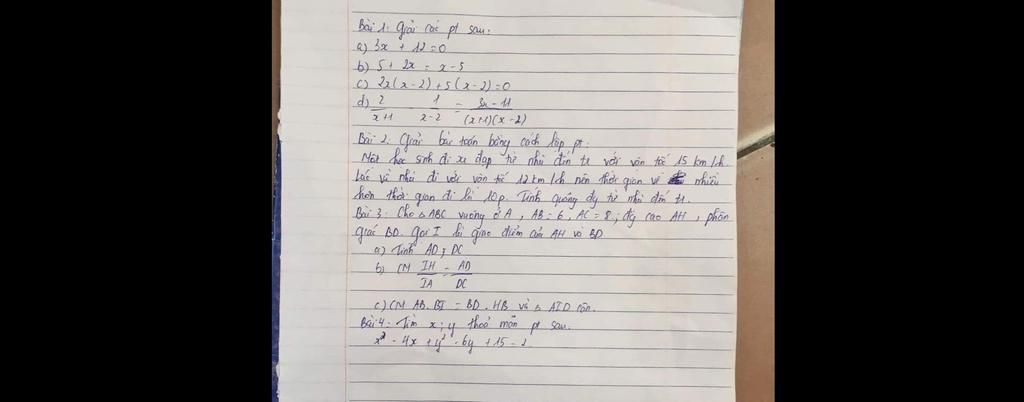 Bài 1: Giải các pt sau:
a) 3x + 12 = 0
b) 5 + 2x = x - 5
c) 2x(x-2) + 5(x-2) = 0
d) 2/(x+1) 1/(x-2) = (3x-11)/((x+1)(x-2))
Bài 2: Giải bài toán bằng cách lập pt:
Một học sinh đi xe đạp từ nhà đến tr với vận tốc 15 km/h.
Lúc về nhà đi với vận tốc 12km/h nên thời gian về nhiều
hơn thời gian đi là 10p. Tính quãng đg từ nhà đến tr.
Bài 3: Cho △ABC vuông ở A, AB = 6, AC = 8; đg cao AH, phân
giác BD. Gọi I là giao điểm của AH và BD
a) Tính AD; DC
b) CM IH/IA = AD/DC
c) CM AB.BI = BD.HB và △ AID cân.
Bài 4: Tìm x; y thoả mãn pt sau.
x² - 4x + y² - 6y + 15 = 2